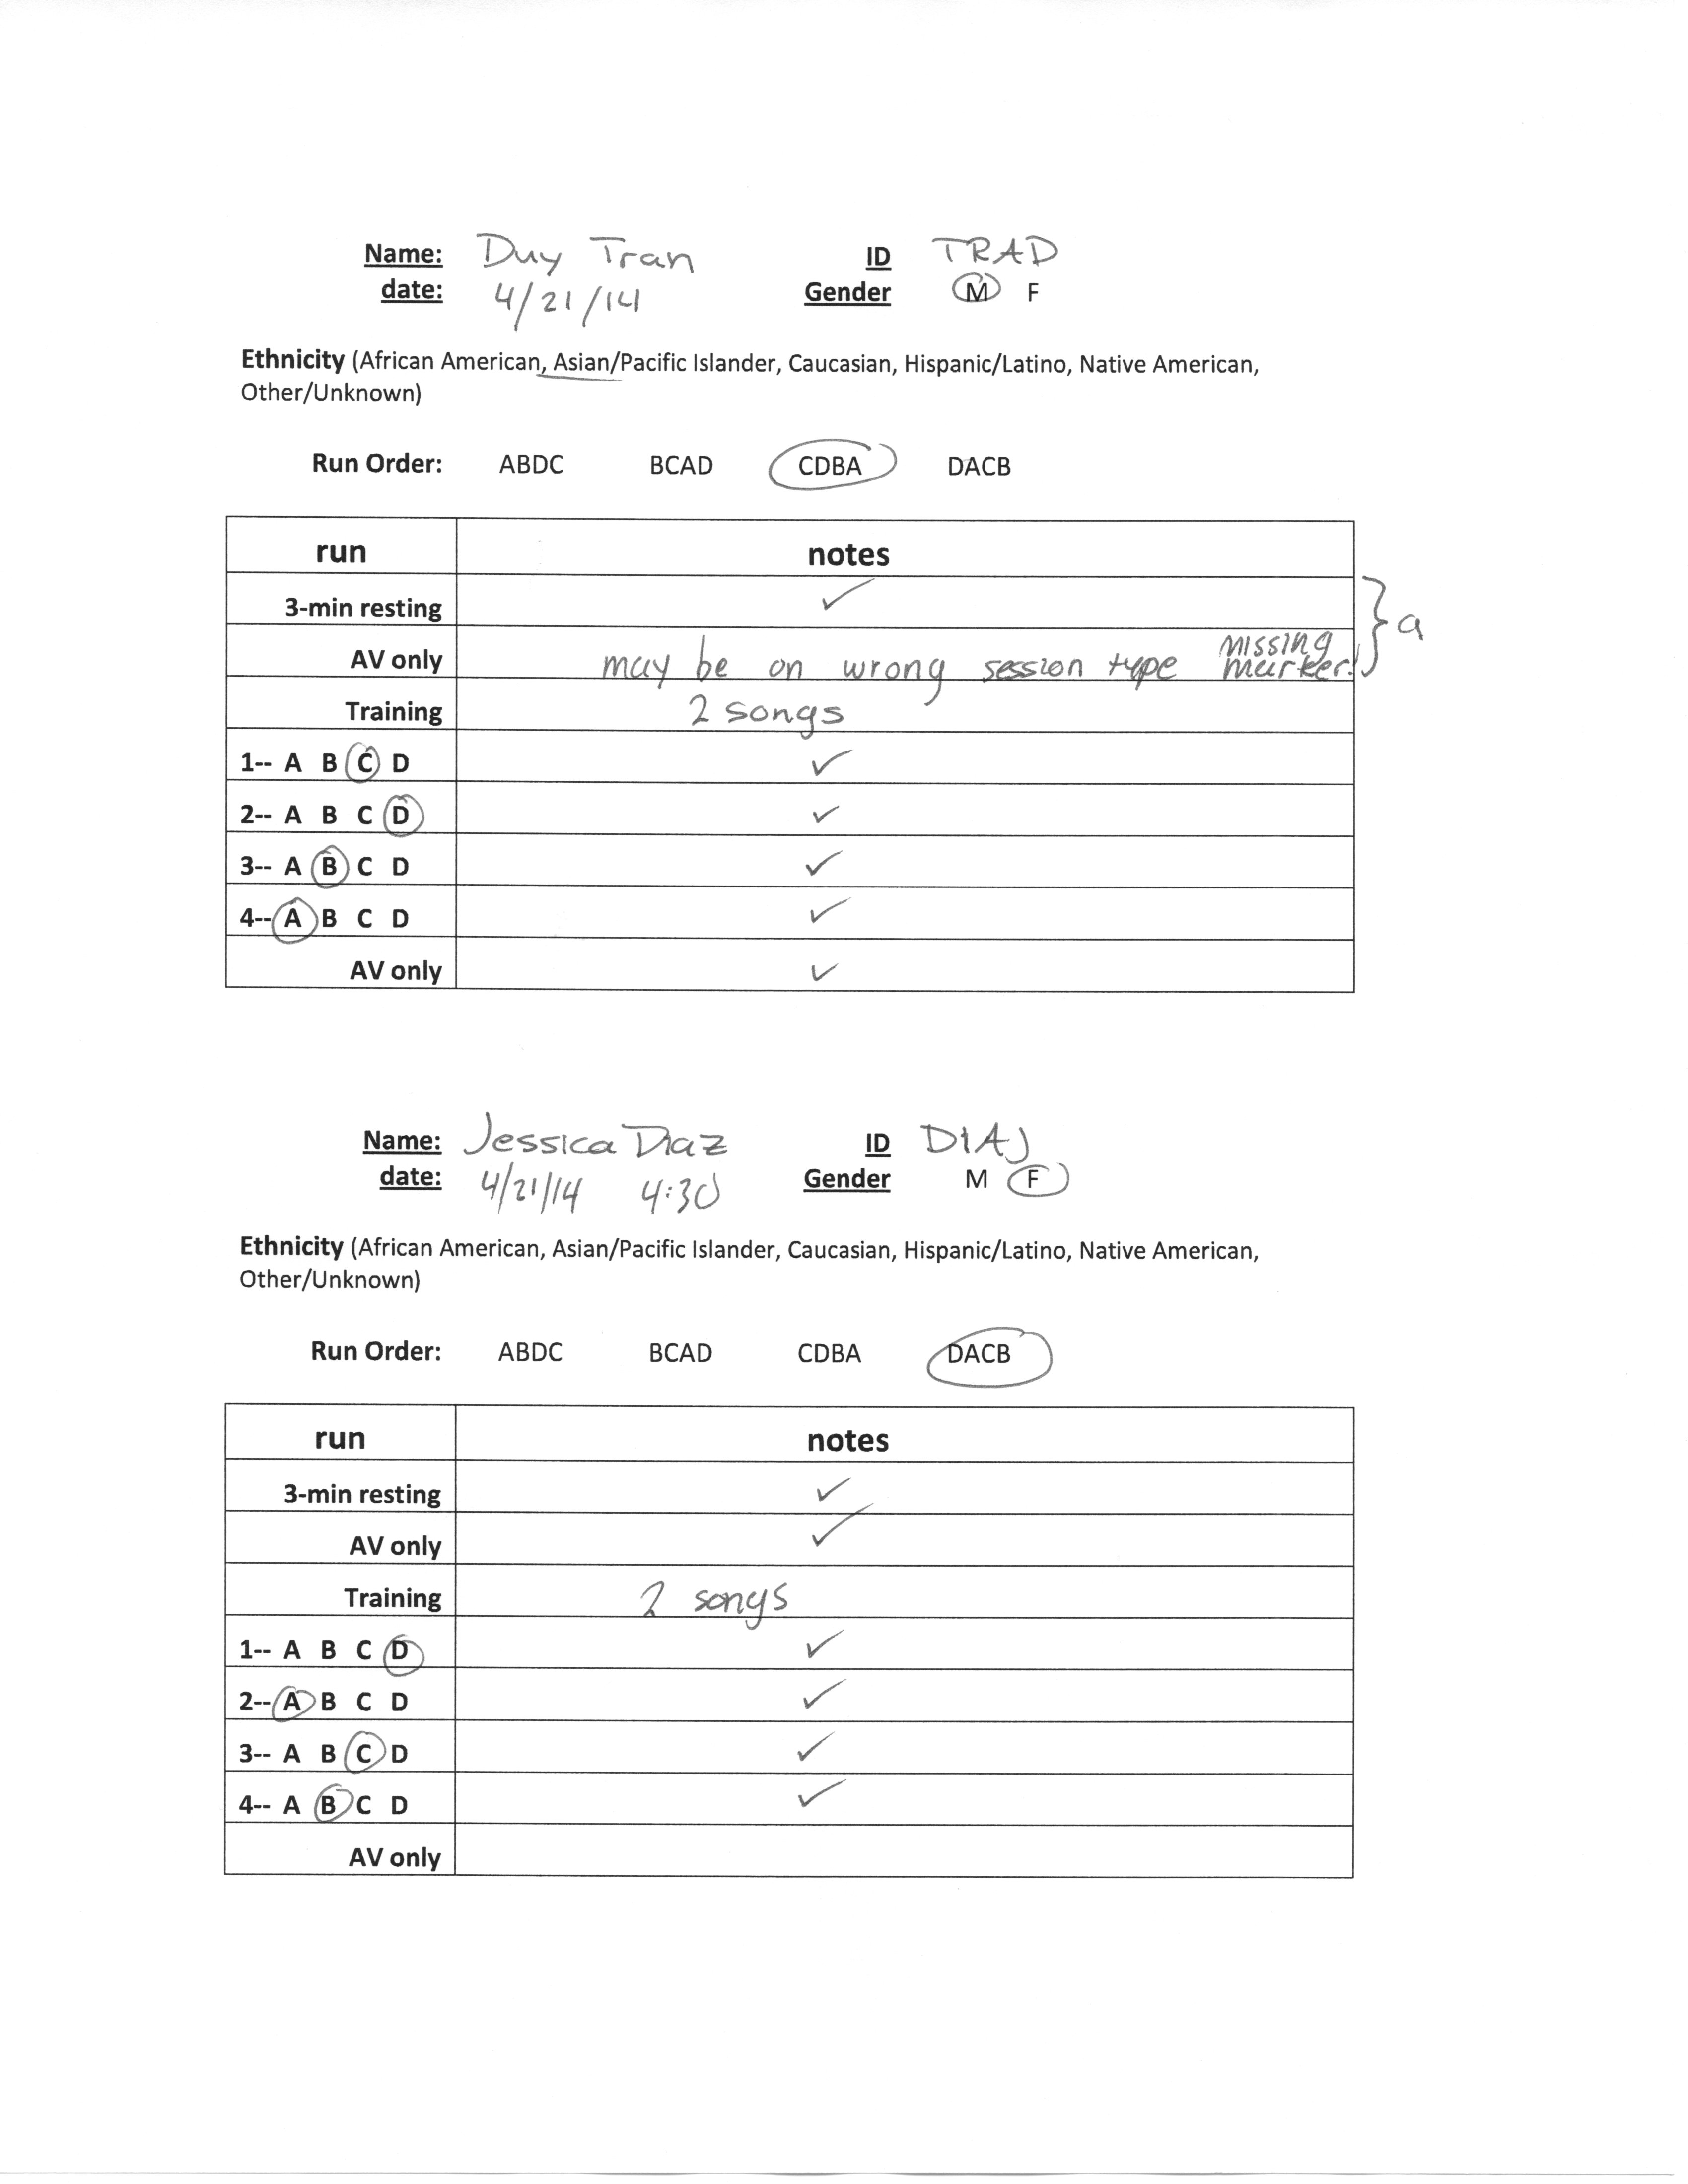 Name: Duy Tran ID TRAD
date: 4/21/14 Gender M F
Ethnicity (African American, Asian/Pacific Islander, Caucasian, Hispanic/Latino, Native American,
Other/Unknown)
Run Order: ABDC BCAD CDBA DACB
run notes
3-min resting ✓
AV only may be on wrong session type missing marker! } a
Training 2 songs
1-- A B C D ✓
2-- A B C D ✓
3-- A B C D ✓
4-- A B C D ✓
AV only ✓
Name: Jessica Diaz ID DIAJ
date: 4/21/14 4:30 Gender M F
Ethnicity (African American, Asian/Pacific Islander, Caucasian, Hispanic/Latino, Native American,
Other/Unknown)
Run Order: ABDC BCAD CDBA DACB
run notes
3-min resting ✓
AV only ✓
Training 2 songs
1-- A B C D ✓
2-- A B C D ✓
3-- A B C D ✓
4-- A B C D ✓
AV only